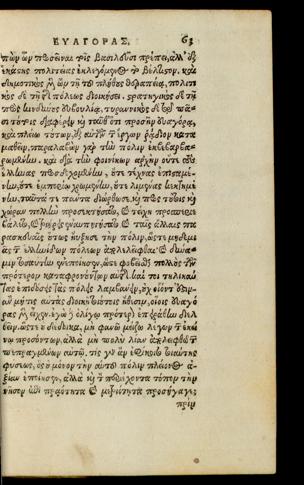 ΕΥΑΓΟΡΑΣ. 63
πων ὧν προσεῖναι τοῖς βασιλεῦσι πρέπει, ἀλλ' ἐξ
ἑκάστης πολιτείας ἐκλεγόμενος τὸ βέλτιστον, καὶ
δημοτικὸς μὲν ὢν τῇ τοῦ πλήθους θεραπείᾳ, πολιτι
κὸς δὲ τῇ τῆς πόλεως διοικήσει, στρατηγικὸς δὲ τῇ
πρὸς κινδύνους εὐβουλίᾳ, τυραννικὸς δὲ τῷ πᾶσι
τούτοις διαφέρειν καὶ ταῦθ' ὅτι προσῆν εὐαγόρᾳ,
καὶ πλείω τούτων, ἐξ αὐτῶν τῶν ἔργων ῥᾴδιον κατα
μαθεῖν. παραλαβὼν γὰρ τὴν πόλιν ἐκβεβαρβα
ρωμένην, καὶ διὰ τὴν φοινίκων ἀρχὴν οὔτε τοὺς
ἕλληνας προσδεχομένην, οὔτε τέχνας ἐπισταμέ
νην, οὔτε ἐμπορίῳ χρωμένην, οὔτε λιμένας κεκτημέ
νην, ταῦτά τε πάντα διώρθωσε, καὶ πρὸς τούτοις καὶ
χώραν πολλὴν προσεκτήσατο, καὶ τείχη προσπεριε
βάλετο, καὶ τριήρεις ἐναυπηγήσατο, καὶ ταῖς ἄλλαις κατα
σκευαῖς οὕτως ηὔξησε τὴν πόλιν, ὥστε μηδεμι
ᾶς τῶν ἑλληνίδων πόλεων ἀπολελεῖφθαι, καὶ δύνα
μιν τοσαύτην ἐνεποίησεν, ὥστε φοβεῖσθαι πολλοὺς τῶν
πρότερον καταφρονούντων αὐτῆς. καί τοι τηλικαύ
τας ἐπιδόσεις τὰς πόλεις λαμβάνειν, οὐχ οἷόντ' ἐστιν,
ἂν μή τις αὐτὰς διοικῇ τοιούτοις ἤθεσιν, οἵοις εὐαγό
ρας μὲν εἶχεν, ἐγὼ δ' ὀλίγῳ πρότερον ἐπειράθην διελ
θεῖν. ὥστε οὐ δέδοικα, μὴ φανῶ μείζω λέγων τῶν ἐκεί
νῳ προσόντων, ἀλλὰ μὴ πολὺ λίαν ἀπολειφθῶ τῶν
πεπραγμένων αὐτῷ. τίς γὰρ ἂν ἐφίκοιτο τοιαύτης
φύσεως, ὃς οὐ μόνον τὴν αὑτοῦ πόλιν πλείονος ἀ
ξίαν ἐποίησεν, ἀλλὰ καὶ τὸν περιέχοντα τόπον τὴν
νῆσον ἐπὶ πρᾳότητα καὶ μετριότητα προήγαγε;
πρὶν